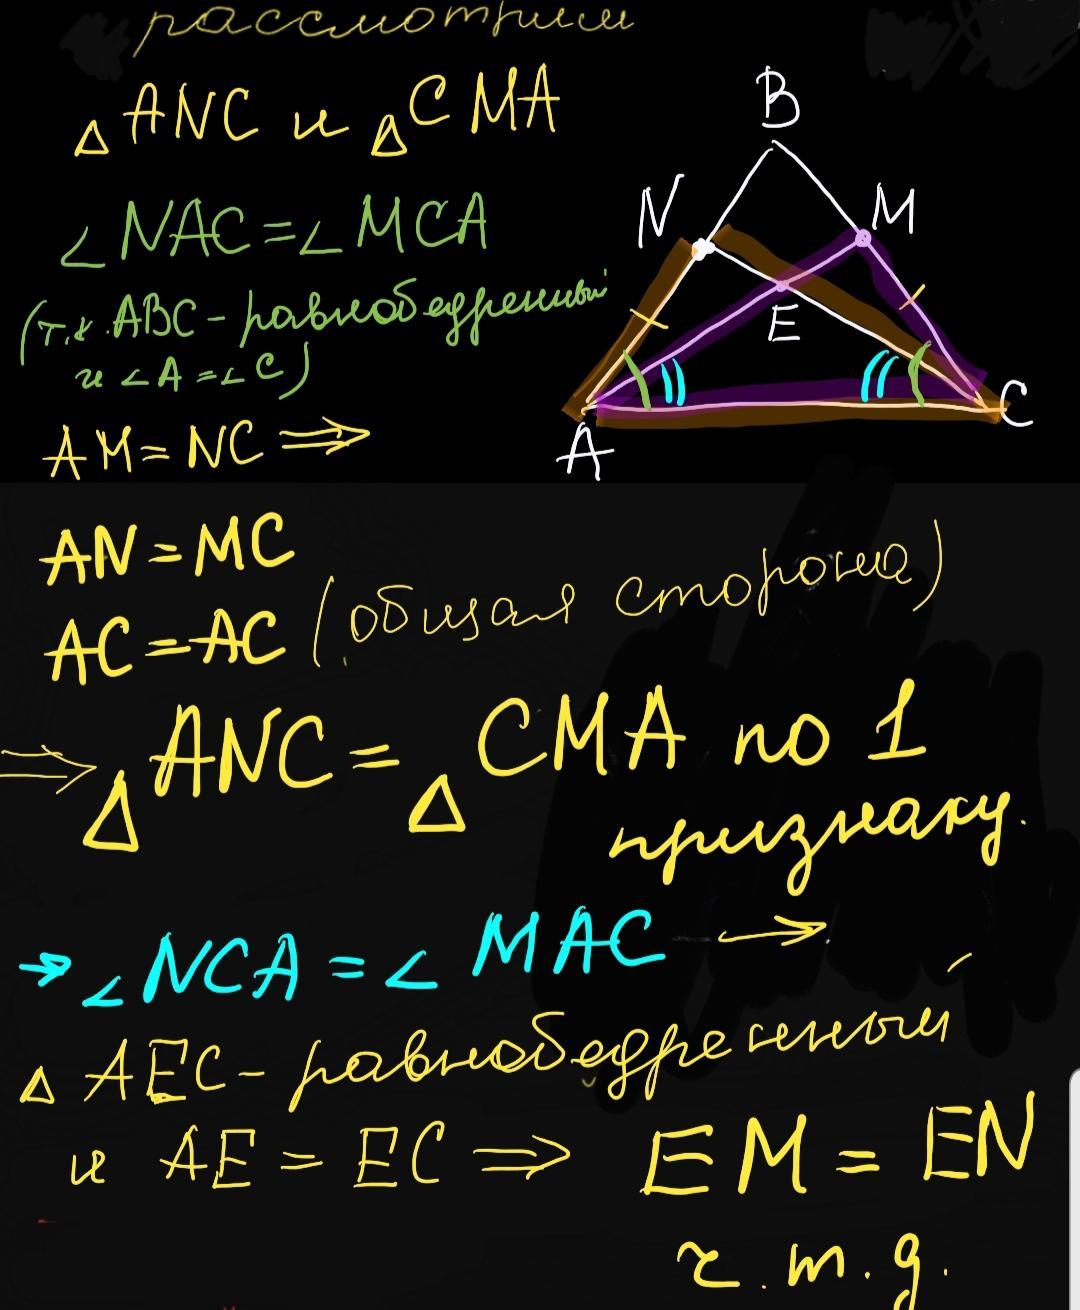 рассмотрим
△ANC и △CMA
∠NAC=∠MCA
(т.к. ABC - равнобедренный
и ∠A=∠C)
AM=NC ⇒
AN=MC
AC=AC (общая сторона)
⇒ △ANC=△CMA по 1
признаку.
→ ∠NCA=∠MAC →
△AEC - равнобедренный
и AE=EC ⇒ EM=EN
ч.т.д.
B
N
M
E
A
C